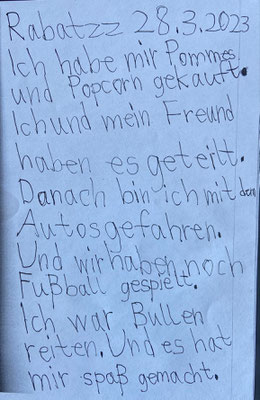 Rabatzz 28.3.2023
Ich habe mir Pommes
und Popcorn gekauft.
Ich und mein Freund
haben es geteilt.
Danach bin ich mit den
Autos gefahren.
Und wir haben noch
Fußball gespielt.
Ich war Bullen
reiten. Und es hat
mir spaß gemacht.